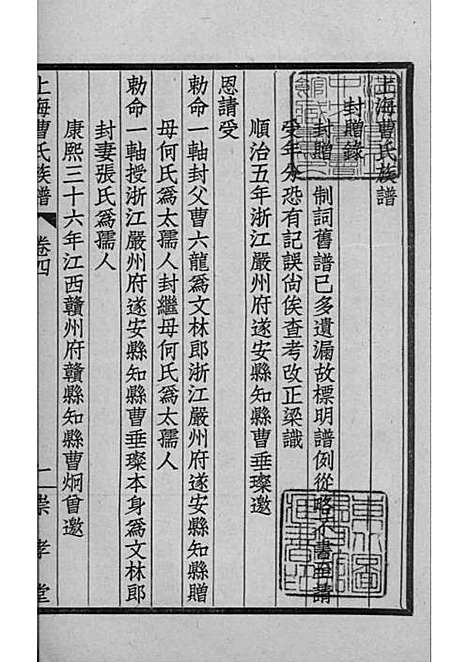 上海曹氏族譜
封贈錄
封贈制詞舊譜已多遺漏故標明譜例從略又書
請
受年分恐有記誤尚俟查考改正梁識
順治五年浙江嚴州府遂安縣知縣曹垂璨邀
恩請受
勅命一軸封父曹六龍爲文林郎浙江嚴州府遂安縣知縣贈
母何氏爲太孺人封繼母何氏爲太孺人
勅命一軸授浙江嚴州府遂安縣知縣曹垂璨本身爲文林郎
封妻張氏爲孺人
康熙三十六年江西贛州府贛縣知縣曹炯曾邀
上海曹氏族譜 卷四 二 崇孝堂